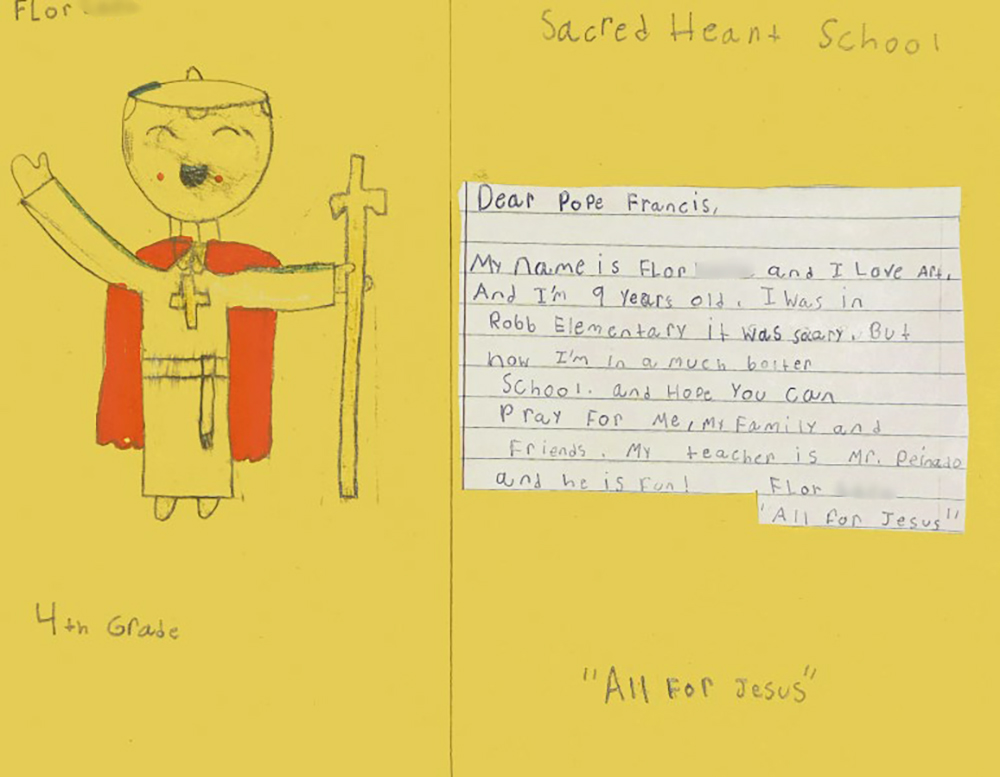 FLor
Sacred Heart School
Dear Pope Francis,
My name is FLor and I Love Art.
And I'm 9 years old. I was in
Robb Elementary it was scary. But
now I'm in a much better
School. and Hope You Can
Pray For Me, My Family and
Friends. My teacher is Mr. Peinado
and he is Fun!
FLor
"All For Jesus"
4th Grade
"All For Jesus"